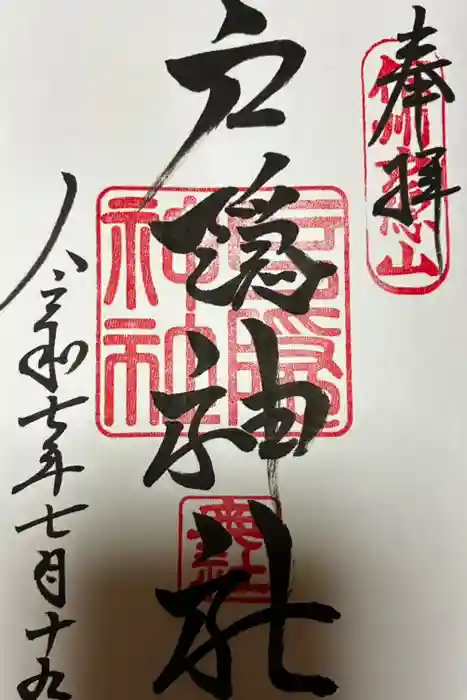 奉拝
信州戸隠山
戸隠神社
戸隠神社
奥社
令和七年七月十九